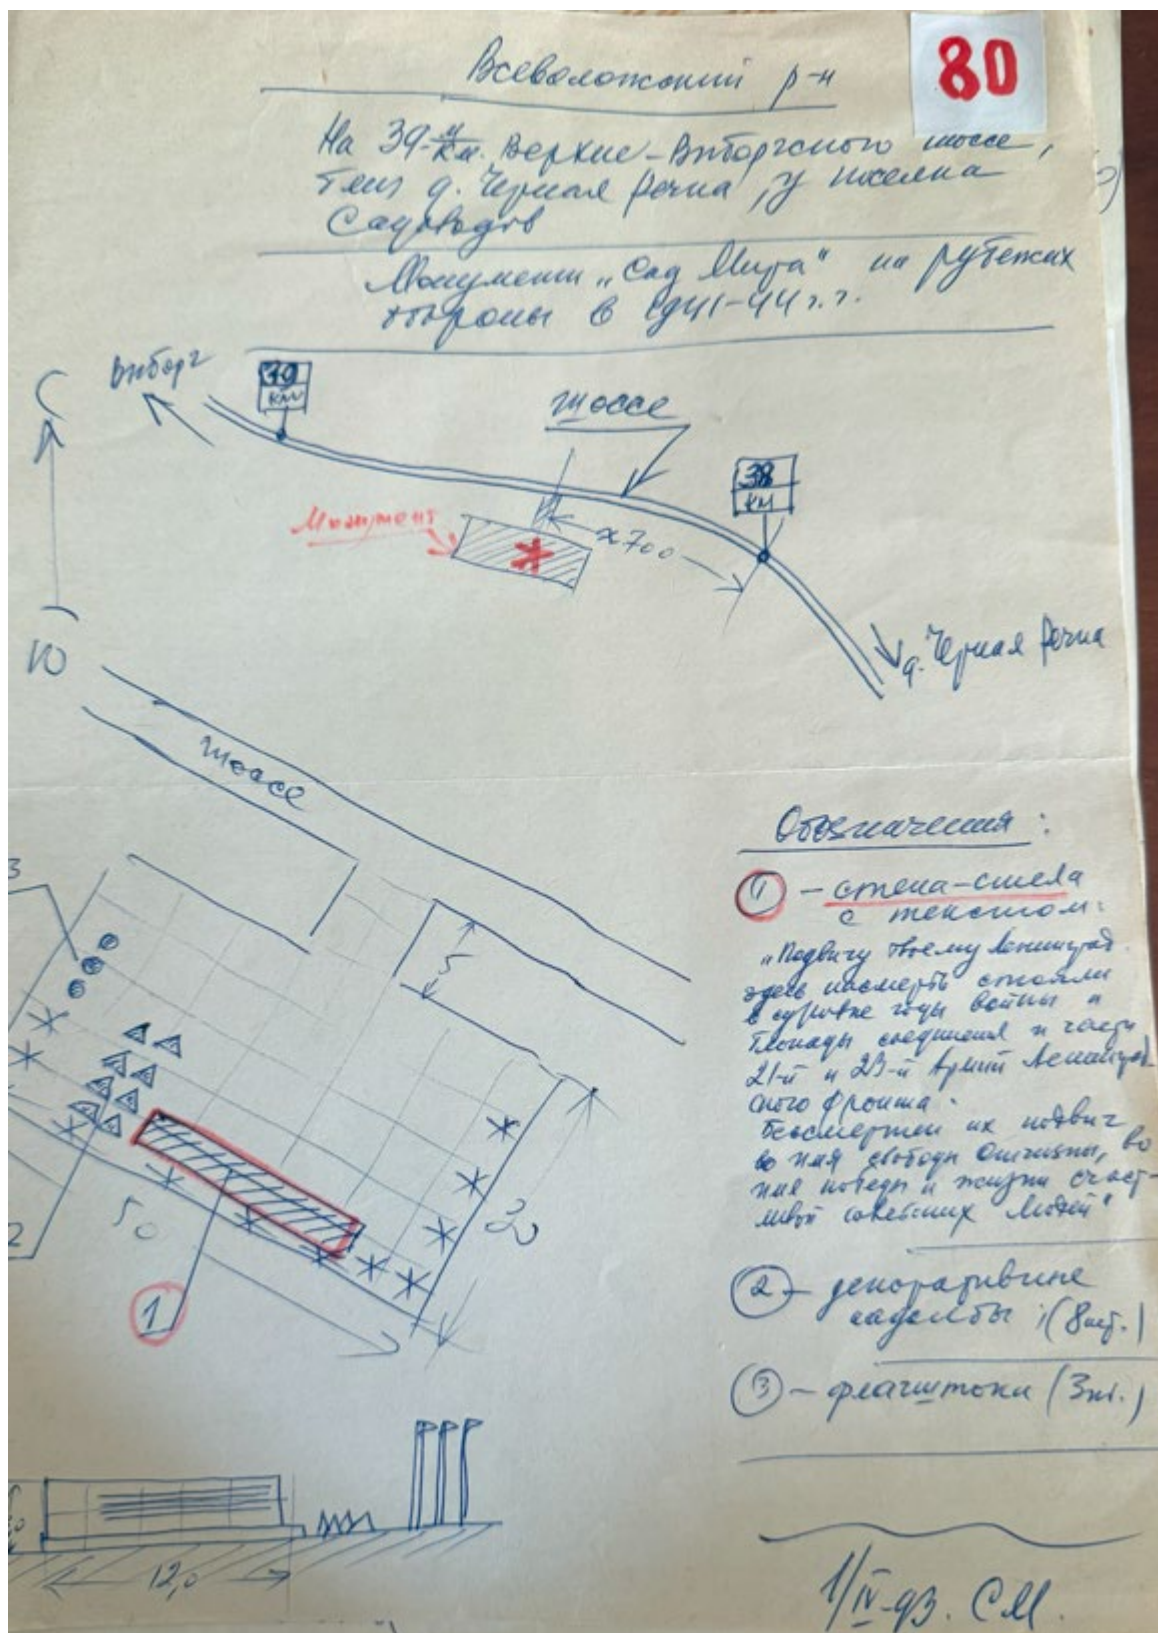 80
Всеволожский р-н
На 39-м км. Верхне-Выборгского шоссе,
близ д. Черная Речка, у поселка
Садоводов
Монумент „Сад Мира" на рубежах
обороны в 1941-44 г.г.
С
Выборг
39
км
шоссе
38
км
Монумент
≈700
Ю
д. Черная Речка
шоссе
Обозначения:
3
1 - стела-стела
с текстом:
„Подвигу твоему Ленинград
здесь насмерть стояли
в суровые годы войны и
блокады соединения и части
21-й и 23-й Армий Ленинград-
ского фронта.
Бессмертен их подвиг
во имя свободы Отчизны, во
имя победы и жизни счаст-
ливой советских людей"
5
50
30
2
1
2 - декоративные
надолбы (8шт.)
3 - флагштоки (3шт.)
12,0
1/IV-93. СМ.